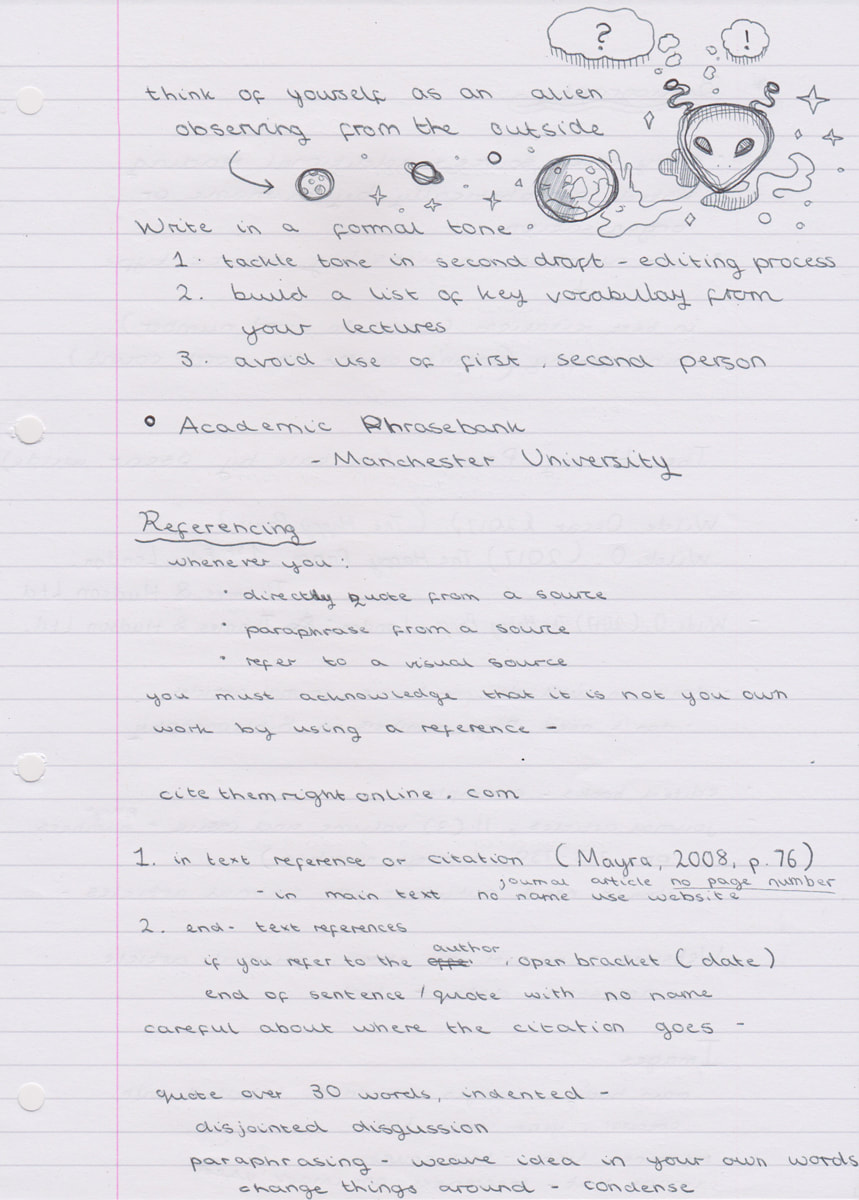 ? !
think of yourself as an alien
observing from the outside
Write in a formal tone
1. tackle tone in second draft - editing process
2. build a list of key vocabulay from
your lectures
3. avoid use of first, second person
Academic Phrasebank
- Manchester University
Referencing
whenever you:
• directly quote from a source
• paraphrase from a source
• refer to a visual source
you must acknowledge that it is not you own
work by using a reference -
citethemrightonline.com
1. in text reference or citation (Mayra, 2008, p.76)
journal article no page number
- in main text no name use website
2. end-text references
author
if you refer to the , open bracket (date)
end of sentence / quote with no name
careful about where the citation goes -
quote over 30 words, indented -
disjointed disgussion
paraphrasing - weave idea in your own words
change things around - condense